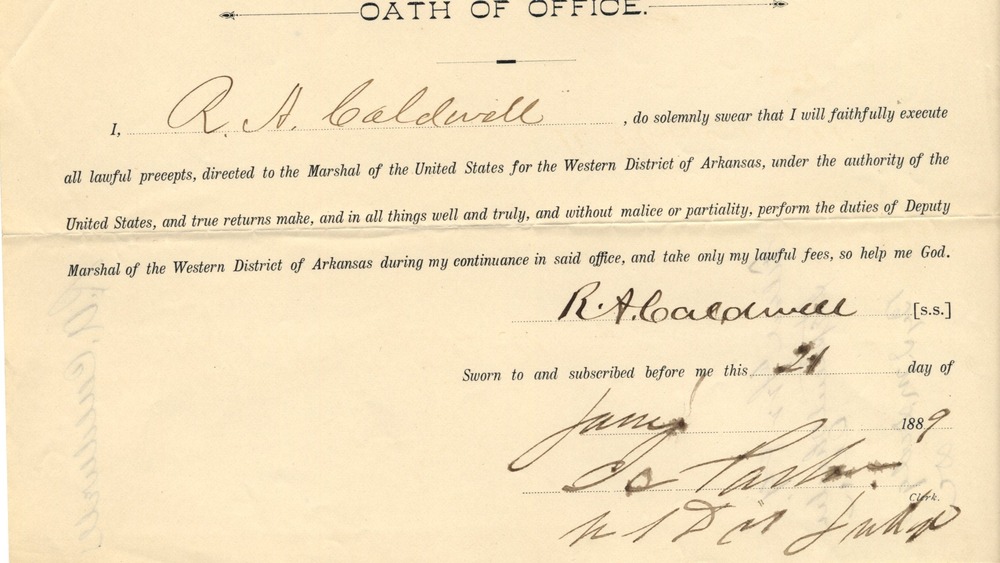 OATH OF OFFICE.
I, R. A. Caldwell, do solemnly swear that I will faithfully execute
all lawful precepts, directed to the Marshal of the United States for the Western District of Arkansas, under the authority of the
United States, and true returns make, and in all things well and truly, and without malice or partiality, perform the duties of Deputy
Marshal of the Western District of Arkansas during my continuance in said office, and take only my lawful fees, so help me God.
R. A. Caldwell [S.S.]
Sworn to and subscribed before me this 21 day of
Jany 1889
I C Parker
Clerk.
U S Dist Judge